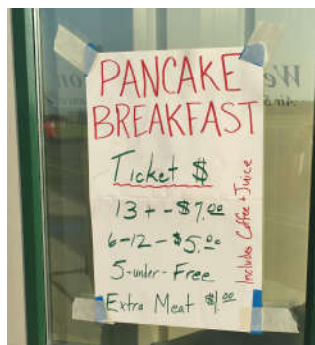 PANCAKE
BREAKFAST
Ticket $
13 + - $7.00
6-12 - $5.00
5-under- Free
Extra Meat $1.00
Includes Coffee + Juice